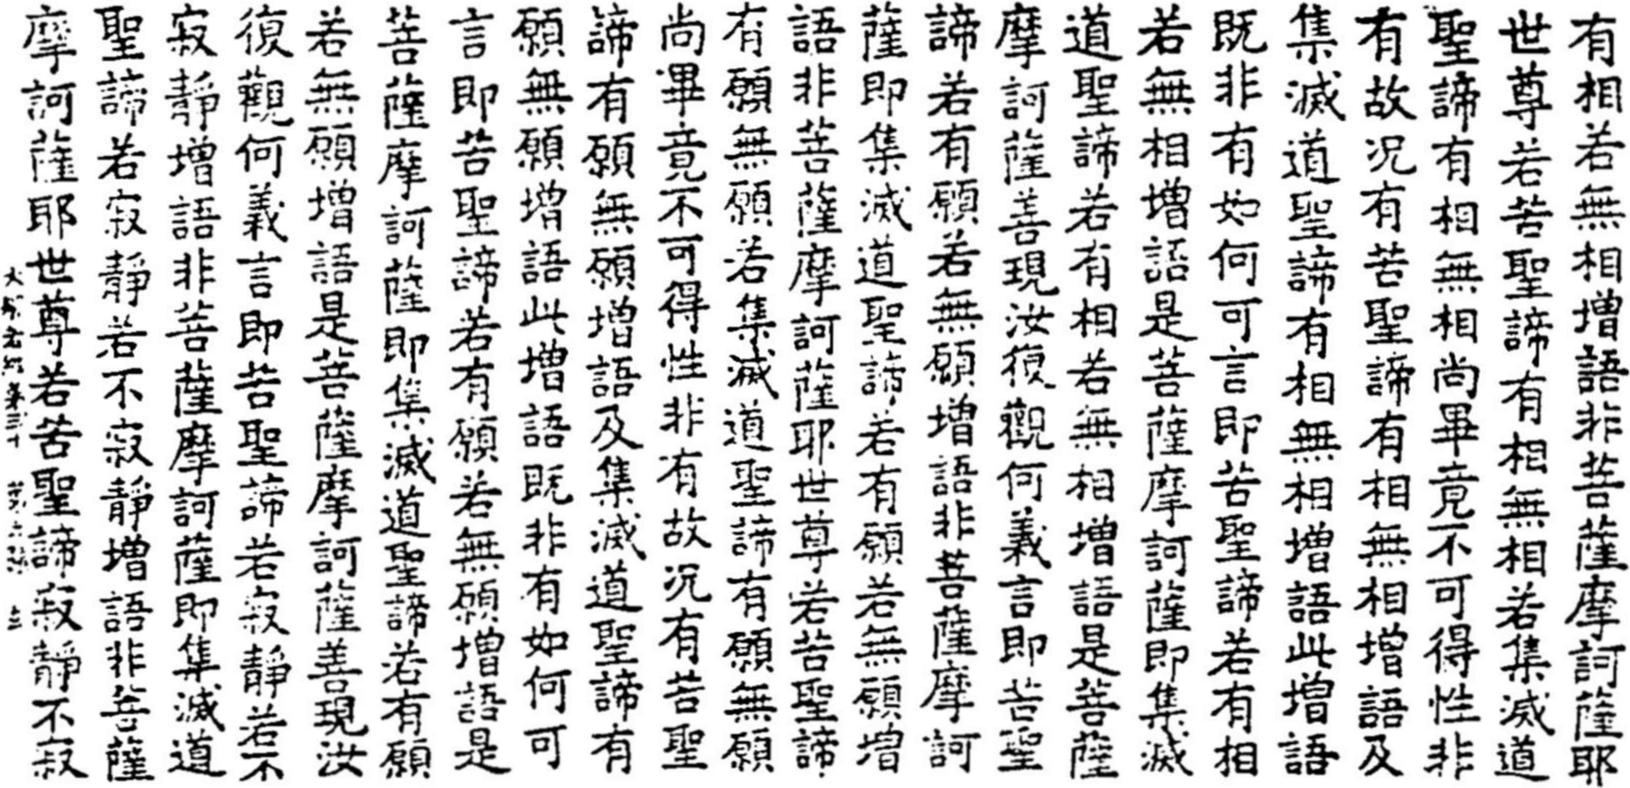 有相若無相增語非菩薩摩訶薩耶
世尊若苦聖諦有相無相若集滅道
聖諦有相無相尚畢竟不可得性非
有故况有苦聖諦有相無相增語及
集滅道聖諦有相無相增語此增語
既非有如何可言即苦聖諦若有相
若無相增語是菩薩摩訶薩即集滅
道聖諦若有相若無相增語是菩薩
摩訶薩善現汝復觀何義言即苦聖
諦若有願若無願增語非菩薩摩訶
薩即集滅道聖諦若有願若無願增
語非菩薩摩訶薩耶世尊若苦聖諦
有願無願若集滅道聖諦有願無願
尚畢竟不可得性非有故况有苦聖
諦有願無願增語及集滅道聖諦有
願無願增語此增語既非有如何可
言即苦聖諦若有願若無願增語是
菩薩摩訶薩即集滅道聖諦若有願
若無願增語是菩薩摩訶薩善現汝
復觀何義言即苦聖諦若寂靜若不
寂靜增語非菩薩摩訶薩即集滅道
聖諦若寂靜若不寂靜增語非菩薩
摩訶薩耶世尊若苦聖諦寂靜不寂
大般若經卷